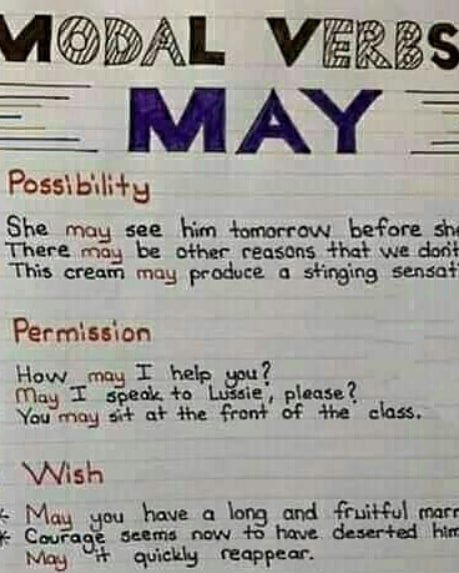 MODAL VERBS
MAY
Possibility
She may see him tomorrow before she
There may be other reasons that we don't
This cream may produce a stinging sensati
Permission
How may I help you?
May I speak to Lussie, please?
You may sit at the front of the class.
Wish
* May you have a long and fruitful marr
* Courage seems now to have deserted him
May it quickly reappear.